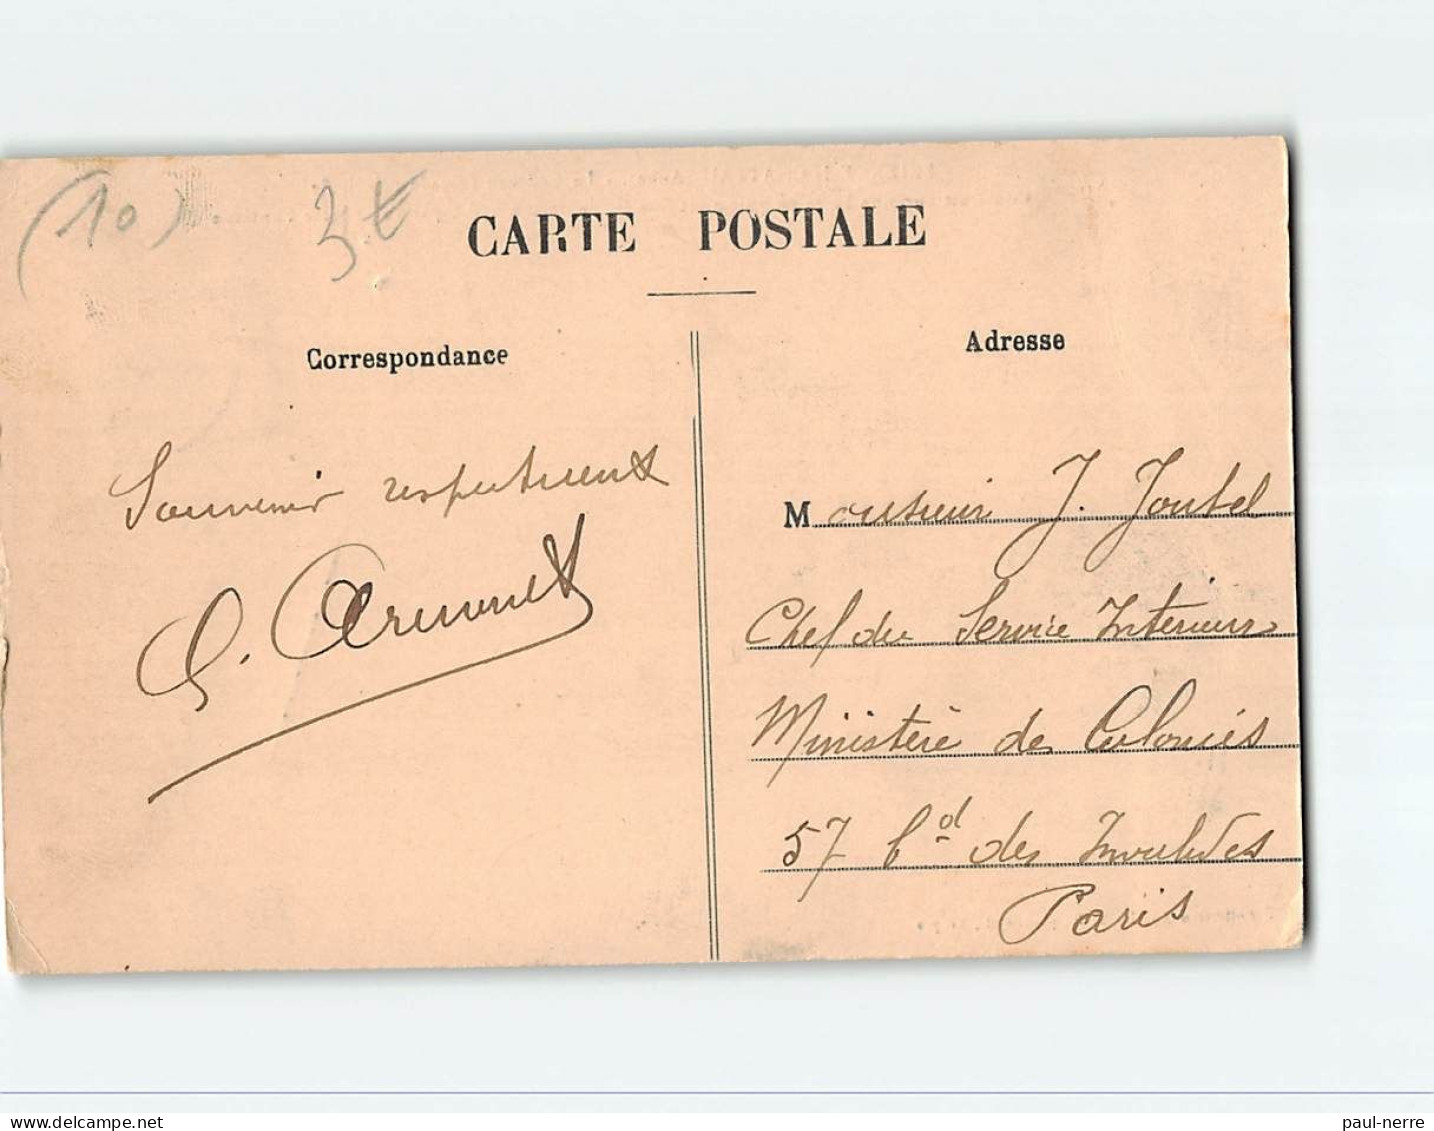 (10) 3€
CARTE POSTALE
Correspondance
Souvenir respectueux
G.
Adresse
Monsieur J. Joubel
Chef du Service Intérieur
Ministère des Colonies
57 Bd des Invalides
Paris
paul-nerre